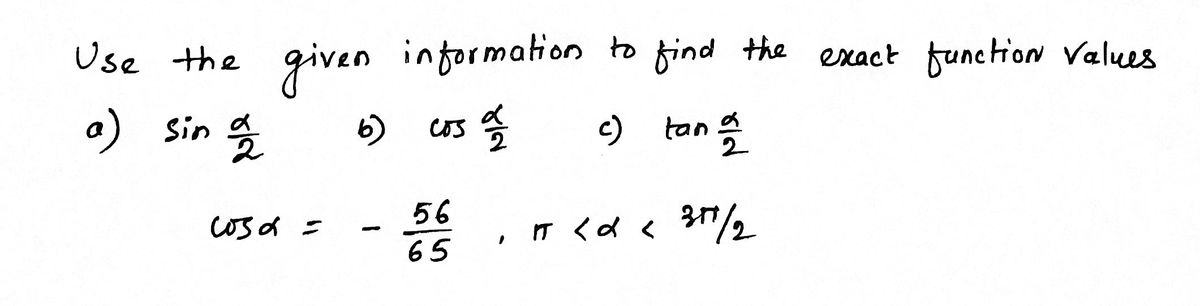 Use the given information to find the exact function values
a) sin α/2 b) cos α/2 c) tan α/2
cosα = - 56/65 , π < α < 3π/2